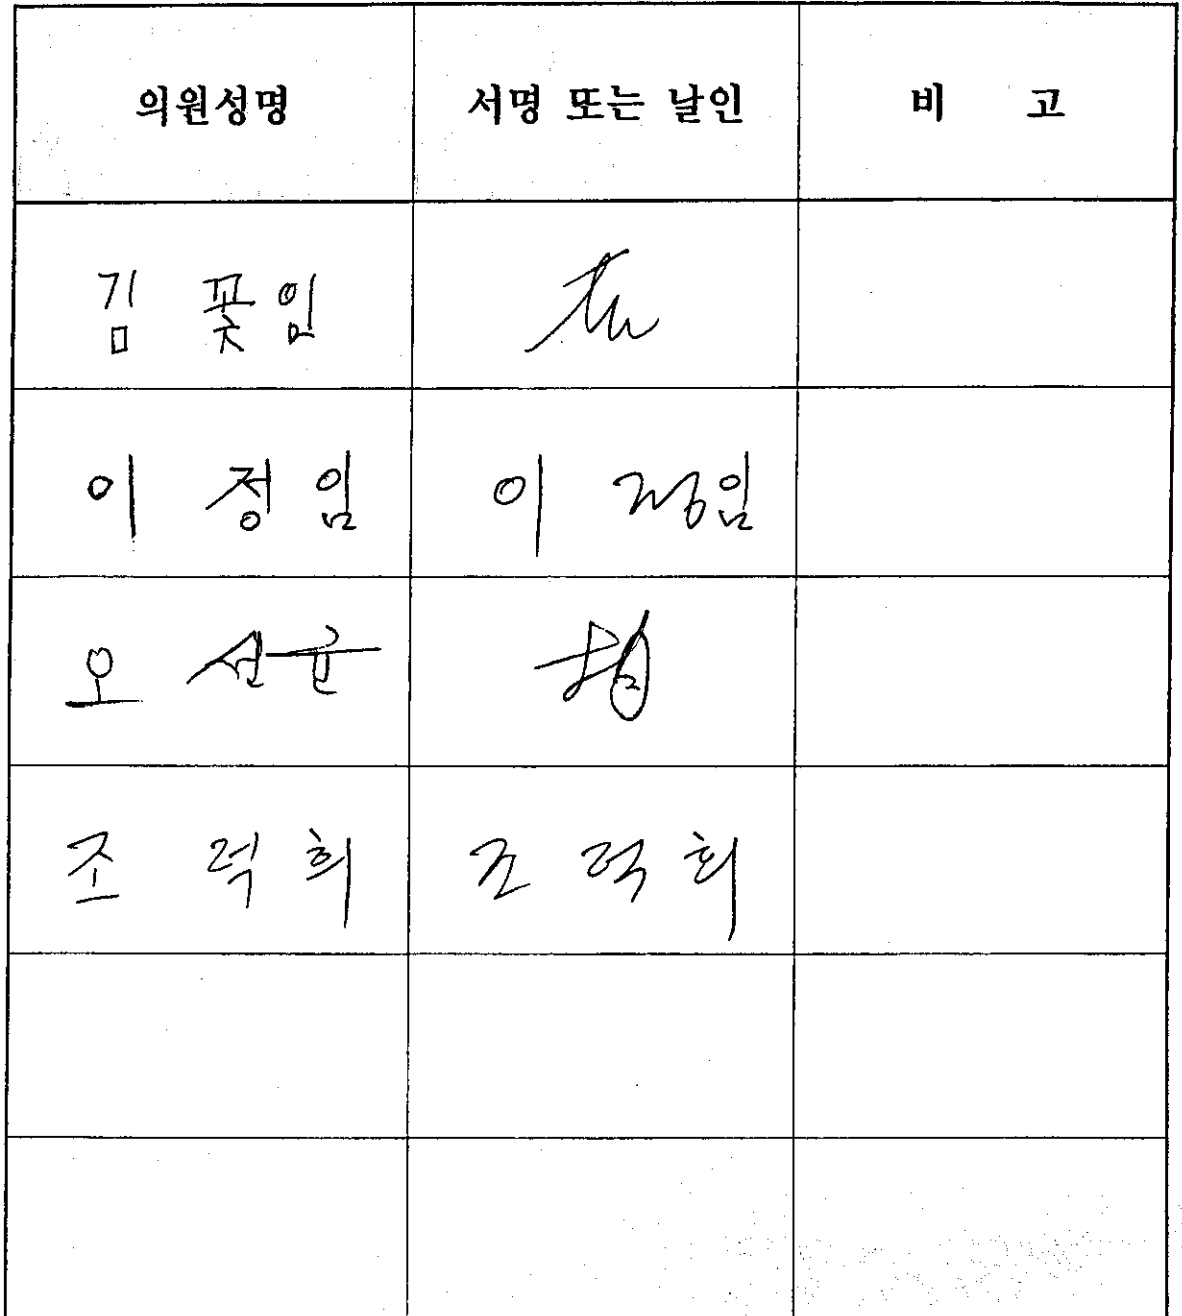 의원성명 서명 또는 날인 비 고
김 꽃임
이 정임 이 정임
오 선균
조 덕희 조 덕희